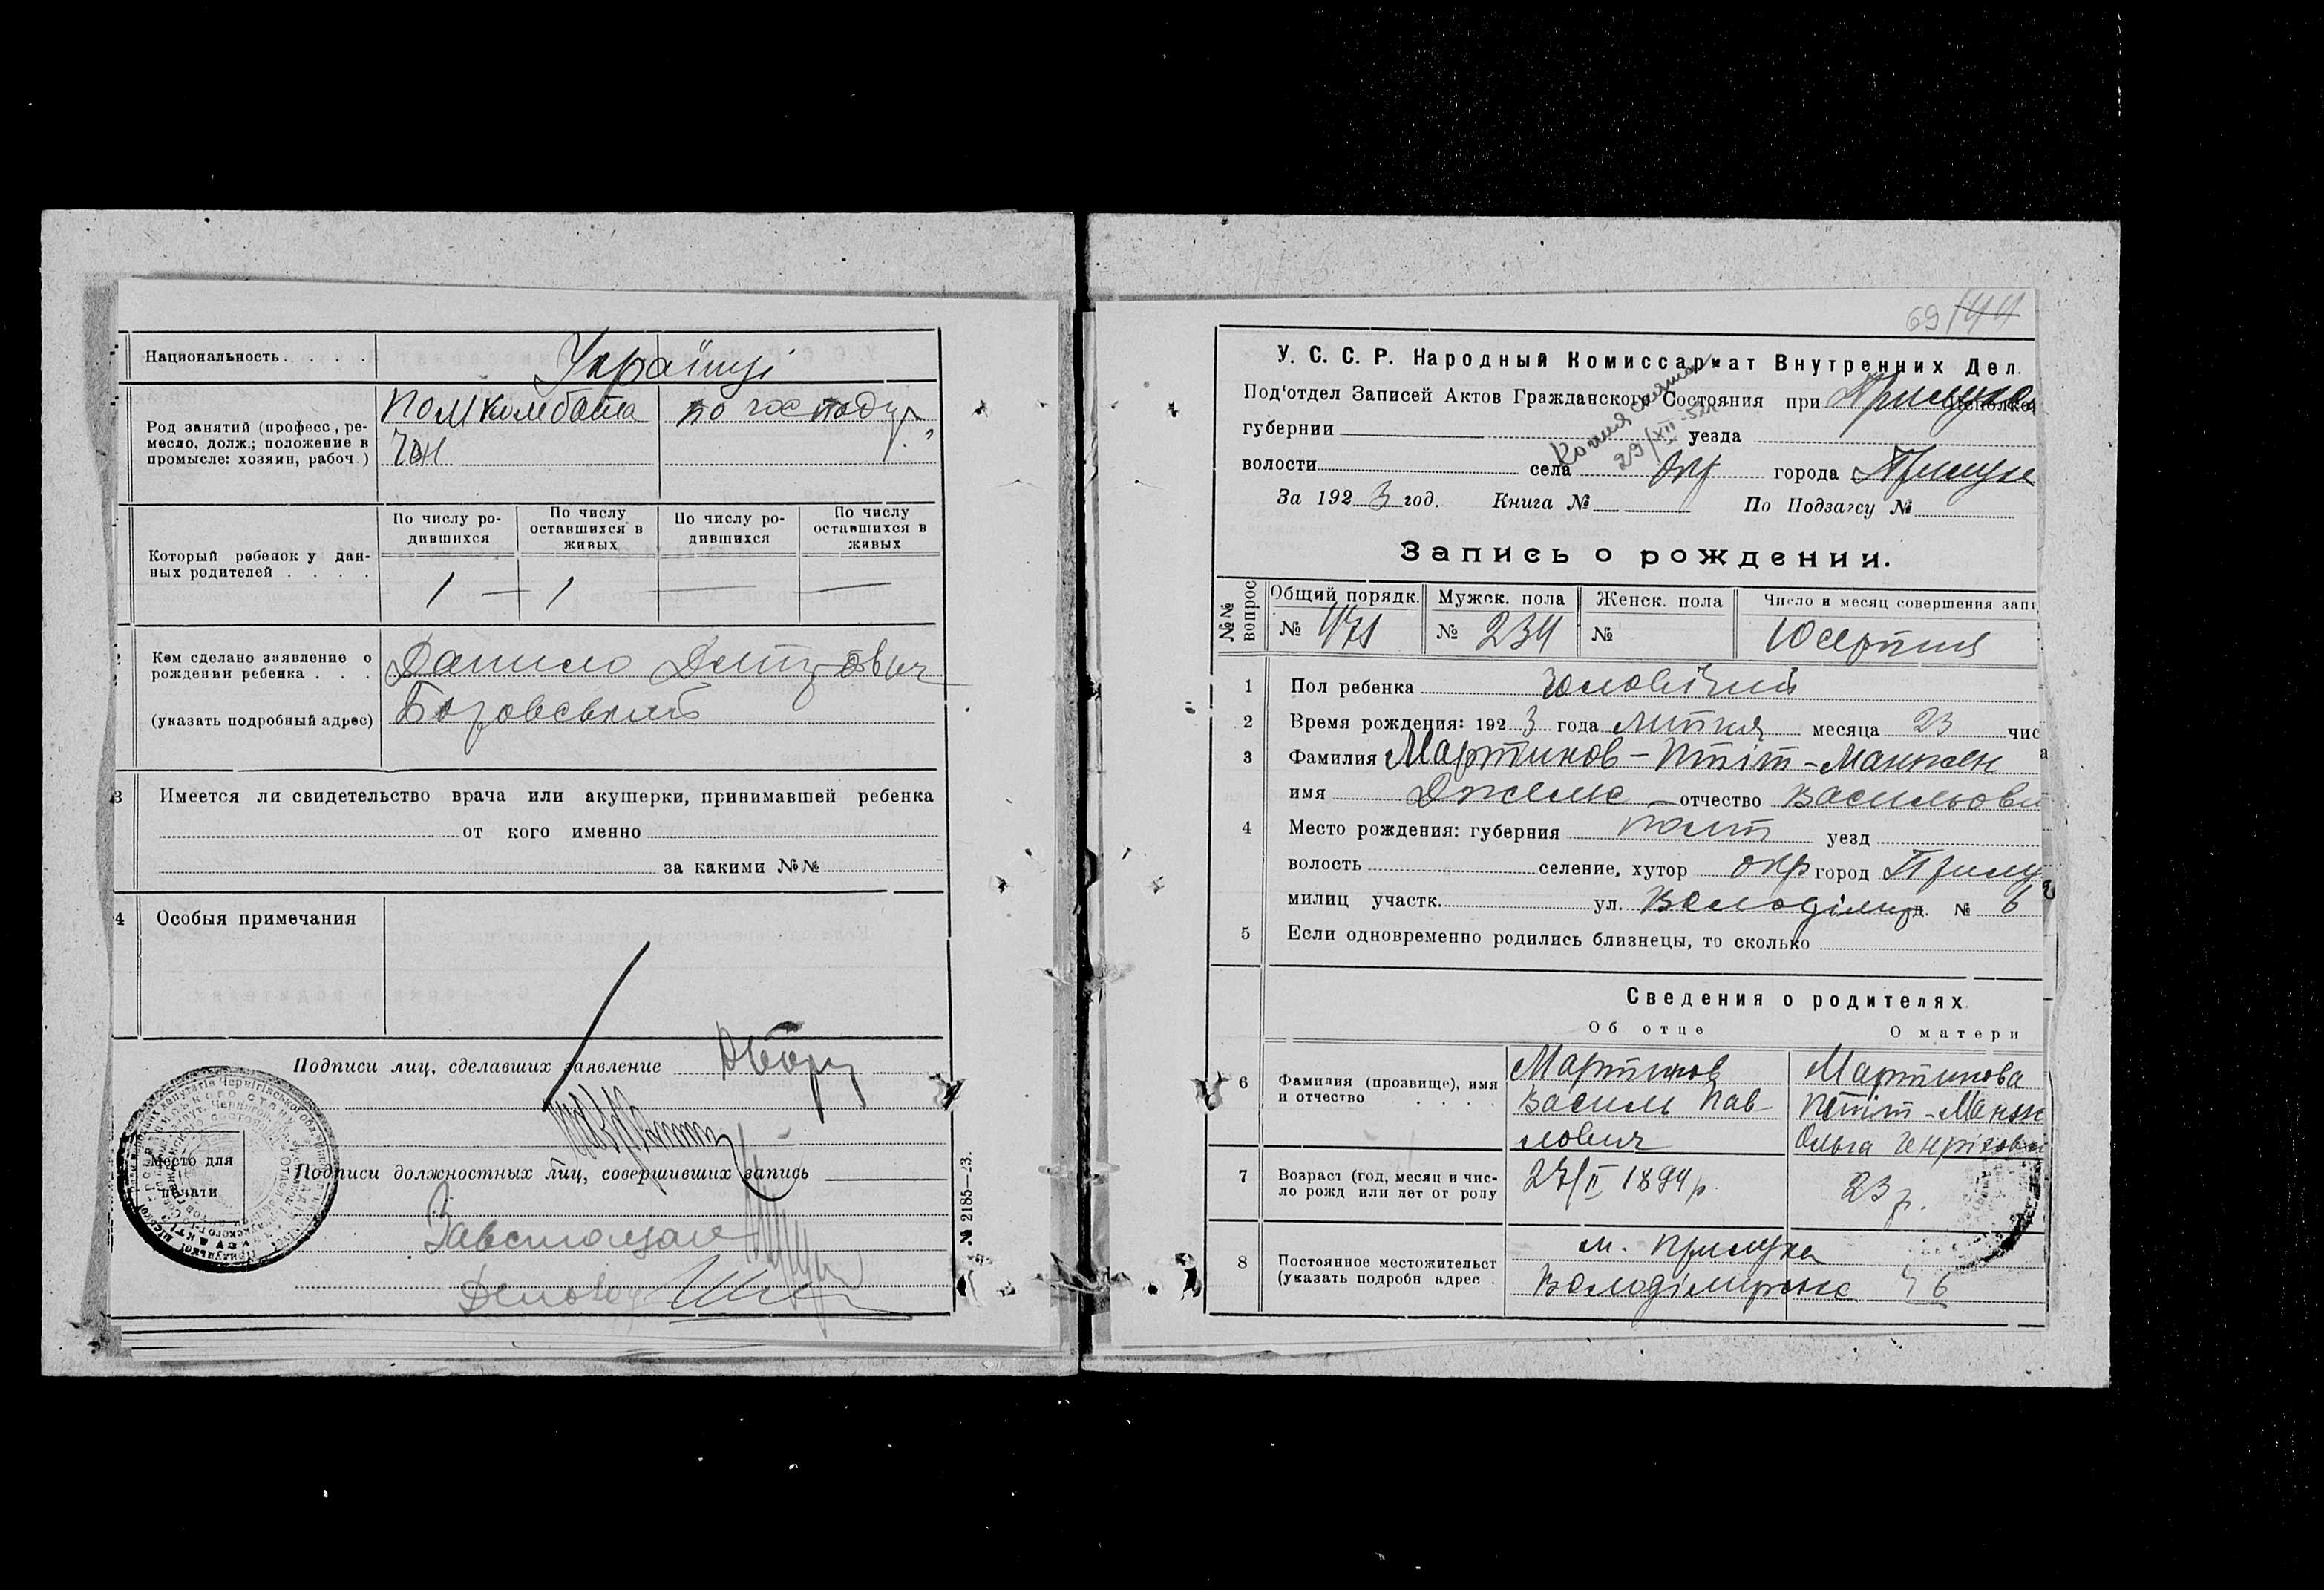 Национальность. . . . .
Українці
Род занятий (професс, ре-
месло, долж.; положение в
промысле: хозяин, рабоч.)
Помкомбата
по господ
Который ребенок у дан-
ных родителей . . . .
По числу ро-
дившихся
По числу
оставшихся в
живых
По числу ро-
дившихся
По числу
оставшихся в
живых
1 — 1 — —
Кем сделано заявление о
рождении ребенка . . .
(указать подробный адрес)
Данило
Боровський
3 Имеется ли свидетельство врача или акушерки, принимавшей ребенка
от кого именно
за какими №№
4 Особыя примечания
Подписи лиц, сделавших заявление
Место для
печати
Подписи должностных лиц, совершивших запись
Завстолом
Деловод
№ 2185—23.
69 144
У. С. С. Р. Народный Комиссариат Внутренних Дел.
Под'отдел Записей Актов Гражданского Состояния при
губернии уезда
волости села Окр города Прилуки
Копия
29/XII-52
За 1923 год. Книга № По Подзагсу №
Запись о рождении.
№№ вопрос
Общий порядк.
№ 471
Мужск. пола
№ 234
Женск. пола
№
Число и месяц совершения запи
10 серпня
1 Пол ребенка чоловічий
2 Время рождения: 1923 года липня месяца 23 чис
3 Фамилия Мартинов-Птіт-Манжен
имя Джемс отчество Васильови
4 Место рождения: губерния Полт уезд
волость селение, хутор окр город Прилу
милиц участк. ул. Володімир д. № 6
5 Если одновременно родились близнецы, то сколько
Сведения о родителях.
Об отце
О матери
6 Фамилия (прозвище), имя
и отчество . . . .
Мартинов
Василь Пав-
лович
Мартинова
Птіт-Манж
Ольга Генріховн
7 Возраст (год, месяц и чис-
ло рожд или лет от роду
27/II 1894 р.
23 р.
8 Постоянное местожительст
(указать подробн адрес .
м. Прилука
Володімирська Ч 6